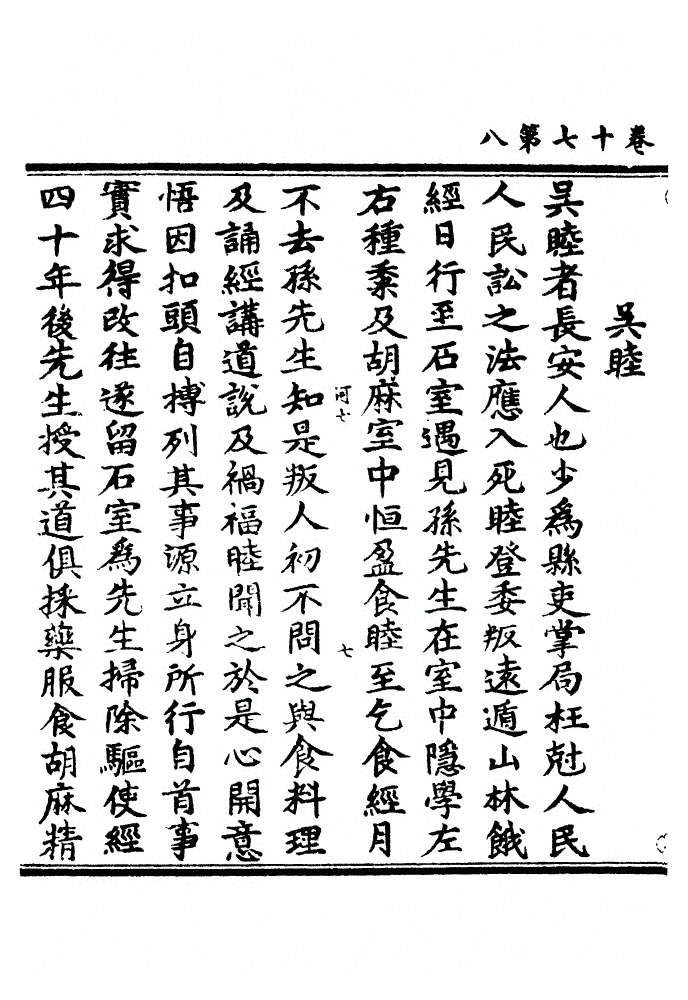 卷十七第八
吳睦
吳睦者長安人也少爲縣吏掌局枉尅人民
人民訟之法應入死睦登委叛遠遁山林餓
經日行至石室遇見孫先生在室中隱學左
右種黍及胡麻室中恒盈食睦至乞食經月
河七
七
不去孫先生知是叛人初不問之與食料理
及誦經講道說及禍福睦聞之於是心開意
悟因扣頭自搏列其事源立身所行自首事
實求得改往遂留石室爲先生掃除驅使經
四十年後先生授其道俱採藥服食胡麻精